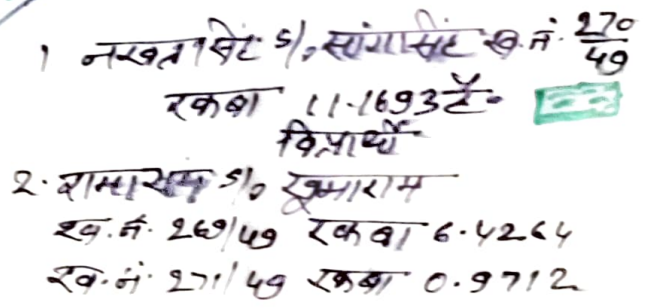 1 नखतसिंह S/o सांगसिंह ख.नं. 270/49
रकबा 11.1693 है.
विप्रार्थी
2. रामाराम S/o खुमाराम
ख.नं. 269/49 रकबा 6.4264
ख.नं. 271/49 रकबा 0.9712